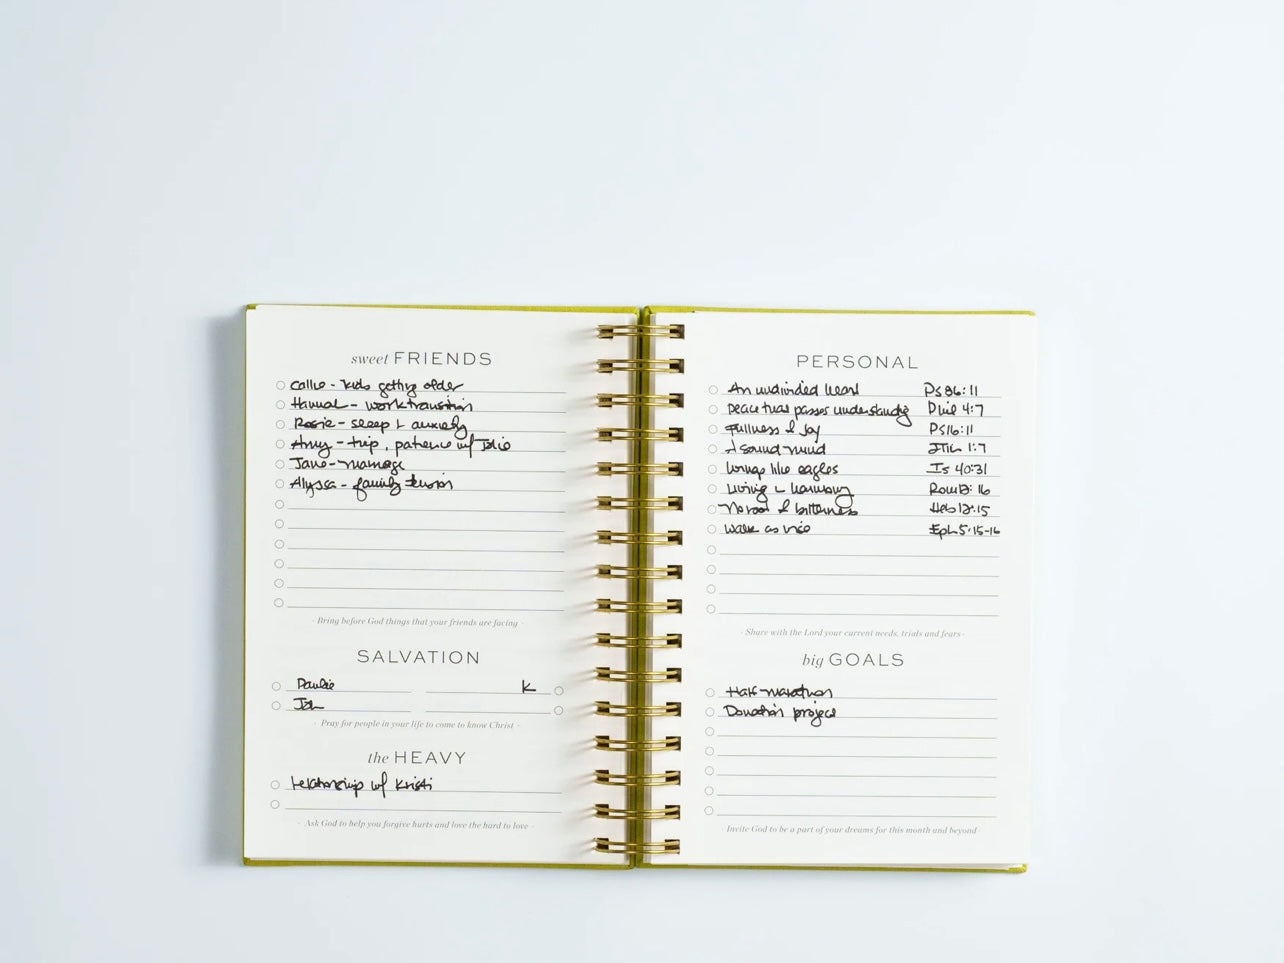 sweet FRIENDS
Callie - kids getting older
Hannah - work transition
Rosie - sleep + anxiety
Amy - trip, patience w/ Idie
Jane - marriage
Alyssa - family tension
- Bring before God things that your friends are facing -
SALVATION
Paulie K
John
- Pray for people in your life to come to know Christ -
the HEAVY
relationship w/ Kristi
- Ask God to help you forgive hurts and love the hard to love -
PERSONAL
An undivided heart Ps 86:11
peace that passes understanding Phil 4:7
fullness of joy Ps 16:11
A sound mind 2Tim 1:7
wings like eagles Is 40:31
Living harmony Rom 12:16
No root of bitterness Heb 12:15
walk as wise Eph 5:15-16
- Share with the Lord your current needs, trials and fears -
big GOALS
Half-marathon
Donation project
- Invite God to be a part of your dreams for this month and beyond -